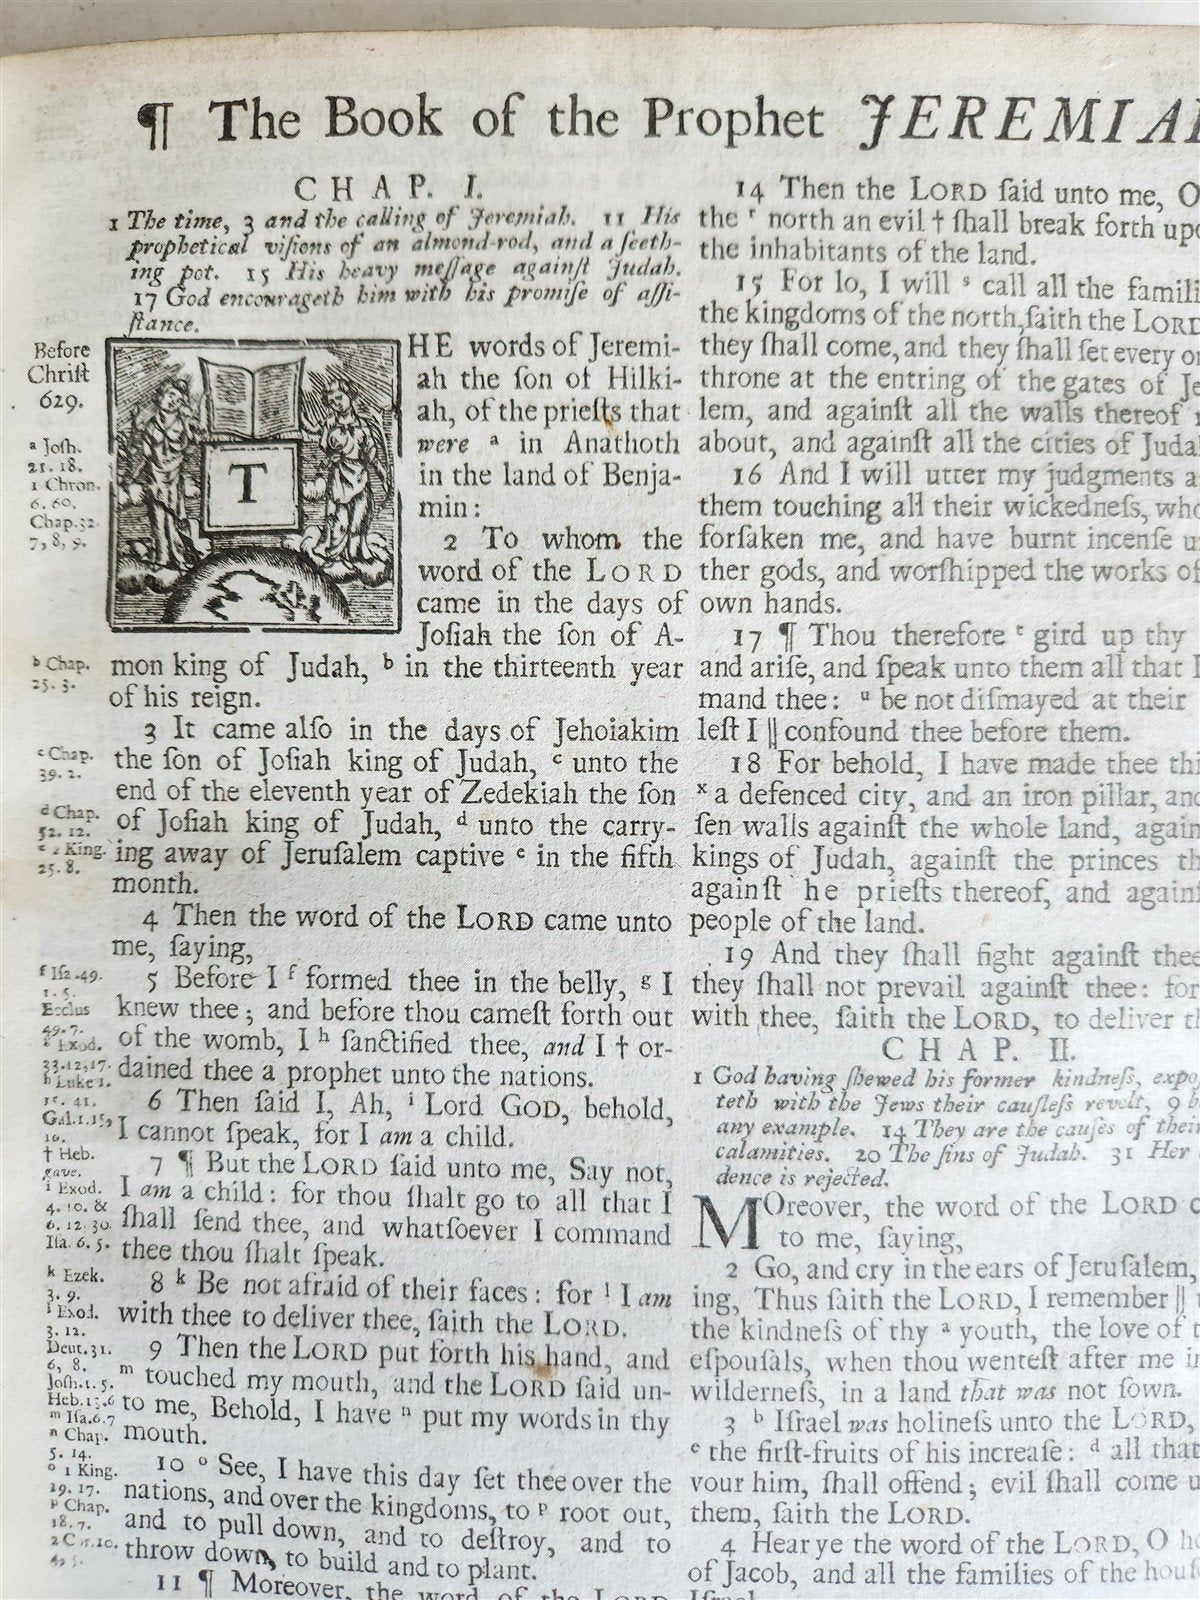 ¶ The Book of the Prophet JEREMIA
CHAP. I.
1 The time, 3 and the calling of Jeremiah. 11 His
prophetical viſions of an almond-rod, and a ſeeth-
ing pot. 15 His heavy meſſage againſt Judah.
17 God encourageth him with his promiſe of aſſi-
ſtance.
Before
Chriſt
629.
a Joſh.
21. 18.
1 Chron.
6. 60.
Chap. 32.
7, 8, 9.
T
HE words of Jeremi-
ah the ſon of Hilki-
ah, of the prieſts that
were a in Anathoth
in the land of Benja-
min:
2 To whom the
word of the LORD
came in the days of
Joſiah the ſon of A-
mon king of Judah, b in the thirteenth year
of his reign.
b Chap.
25. 3.
3 It came alſo in the days of Jehoiakim
the ſon of Joſiah king of Judah, c unto the
end of the eleventh year of Zedekiah the ſon
of Joſiah king of Judah, d unto the carry-
ing away of Jeruſalem captive e in the fifth
month.
c Chap.
39. 2.
d Chap.
52. 12.
e 2 King.
25. 8.
4 Then the word of the LORD came unto
me, ſaying,
5 Before I f formed thee in the belly, g I
knew thee; and before thou cameſt forth out
of the womb, I h ſanctified thee, and I † or-
dained thee a prophet unto the nations.
f Iſa. 49.
1. 5.
Ecclus
49. 7.
g Exod.
33. 12, 17.
h Luke 1.
15. 41.
Gal. 1. 15,
16.
† Heb.
gave.
6 Then ſaid I, Ah, i Lord GOD, behold,
I cannot ſpeak, for I am a child.
7 ¶ But the LORD ſaid unto me, Say not,
I am a child: for thou ſhalt go to all that I
ſhall ſend thee, and whatſoever I command
thee thou ſhalt ſpeak.
i Exod.
4. 10. &
6. 12. 30.
Iſa. 6. 5.
8 k Be not afraid of their faces: for l I am
with thee to deliver thee, ſaith the LORD.
k Ezek.
3. 9.
l Exod.
3. 12.
Deut. 31.
6, 8.
Joſh. 1. 5.
Heb. 13. 6
9 Then the LORD put forth his hand, and
m touched my mouth, and the LORD ſaid un-
to me, Behold, I have n put my words in thy
mouth.
m Iſa. 6. 7
n Chap.
5. 14.
10 o See, I have this day ſet thee over the
nations, and over the kingdoms, to p root out,
and to pull down, and to deſtroy, and to
throw down, to build and to plant.
o 1 King.
19. 17.
p Chap.
18. 7.
2 Cor. 10.
4, 5.
11 ¶ Moreover, the word of the LORD
14 Then the LORD ſaid unto me, O
the r north an evil † ſhall break forth upo
the inhabitants of the land.
15 For lo, I will s call all the famili
the kingdoms of the north, ſaith the LORD
they ſhall come, and they ſhall ſet every on
throne at the entring of the gates of Je
lem, and againſt all the walls thereof r
about, and againſt all the cities of Juda
16 And I will utter my judgments a
them touching all their wickedneſs, who
forſaken me, and have burnt incenſe u
ther gods, and worſhipped the works of
own hands.
17 ¶ Thou therefore t gird up thy
and ariſe, and ſpeak unto them all that I
mand thee: u be not diſmayed at their
leſt I || confound thee before them.
18 For behold, I have made thee thi
x a defenced city, and an iron pillar, and
ſen walls againſt the whole land, again
kings of Judah, againſt the princes th
againſt he prieſts thereof, and againſ
people of the land.
19 And they ſhall fight againſt thee
they ſhall not prevail againſt thee: for
with thee, ſaith the LORD, to deliver th
CHAP. II.
1 God having ſhewed his former kindneſs, expo
teth with the Jews their cauſleſs revolt, 9 b
any example. 14 They are the cauſes of their
calamities. 20 The ſins of Judah. 31 Her
dence is rejected.
MOreover, the word of the LORD c
to me, ſaying,
2 Go, and cry in the ears of Jeruſalem,
ing, Thus ſaith the LORD, I remember || t
the kindneſs of thy a youth, the love of t
eſpouſals, when thou wenteſt after me in
wilderneſs, in a land that was not ſown.
3 b Iſrael was holineſs unto the LORD,
c the firſt-fruits of his increaſe: d all that
vour him, ſhall offend; evil ſhall come u
them, ſaith the LORD.
4 Hear ye the word of the LORD, O ho
of Jacob, and all the families of the houſ
Iſrael.